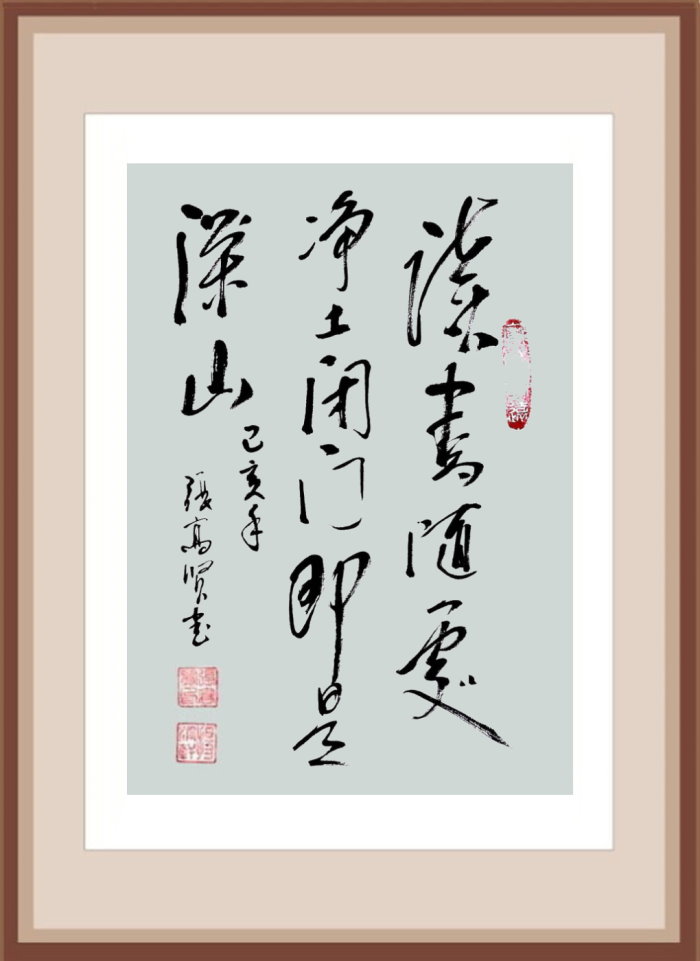 读书随处
净土闭门即是
深山
己亥年
张高贤书